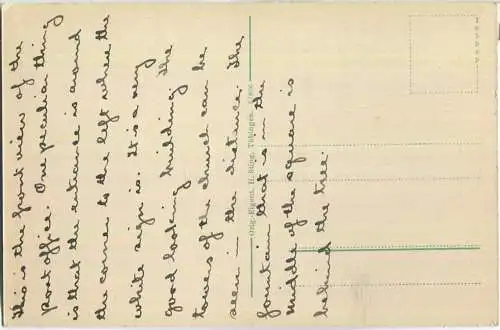 This is the front view of the
Post office. One peculiar thing
is that the entrance is around
the corner to the left where the
white sign is. It is a very
good looking building. The
towers of the church can be
seen in the distance. The
fountain that is in the
middle of the square is
behind the tree.
Orig.-Eigent. H. Sting, Tübingen.